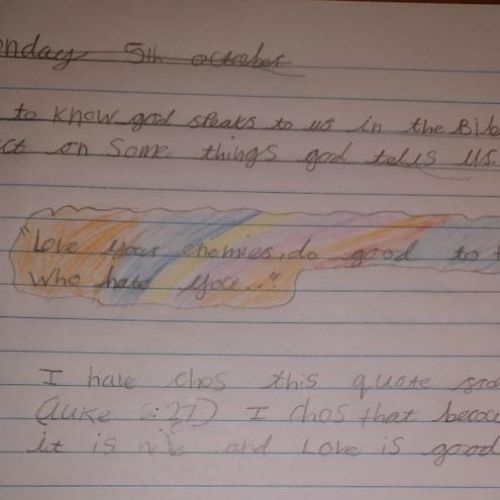 onday 5th october
to know god speaks to us in the Bib
ct on Some things god tells us.
"Love your enemies, do good to t
who hate you..."
I have chos this quote
(Luke 6:27) I chos that becou
it is and Love is good